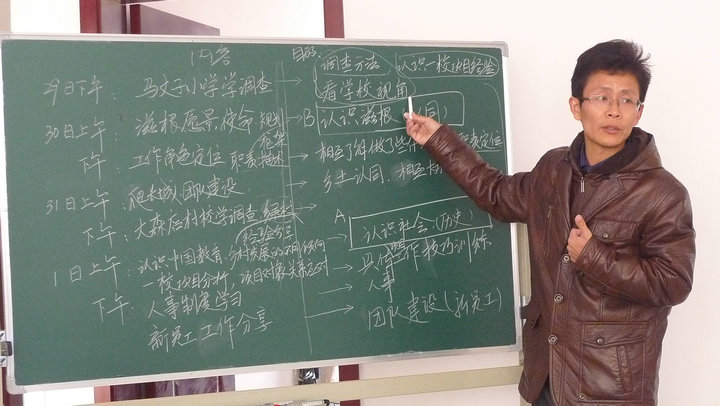 内容 目的: 调查方法 认识一校项目经验
29日下午: 马文子小学学调查 看学校视角
30日上午: 滋根愿景、使命 规划 框架 B 认识滋根
下午: 工作角色定位 职责描述 相互了解 职责定位
31日上午: 爬长城、团队建设 乡土认同、相互
下午: 大森店村校学调查 A 认识社会(历史)
经验分享
1日上午: 认识中国教育、乡村发展的不同倾向 具体工作技巧训练
一校项目分析,项目对象关系应对
下午: 人事制度学习 人事
新员工工作分享 团队建设(新员工)